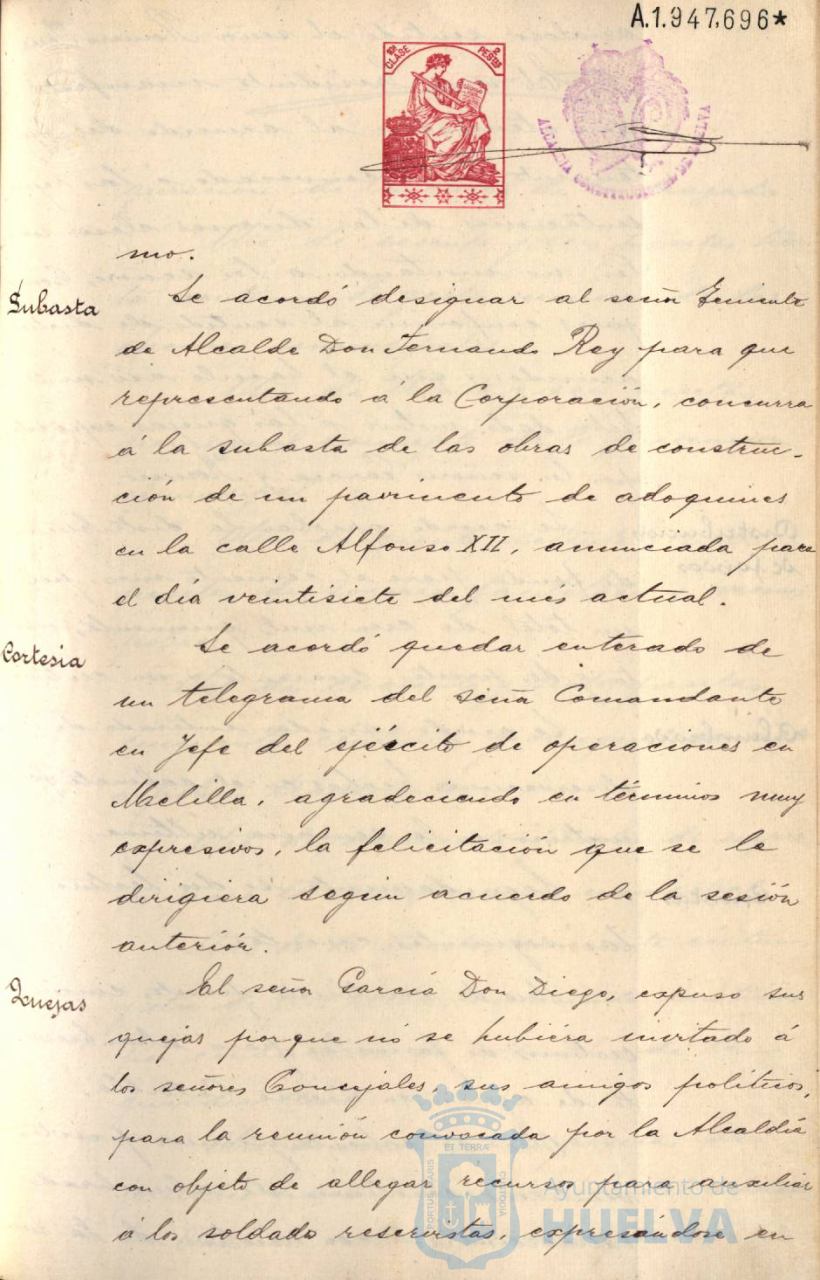 A.1.947,696*
10ª CLASE
2 PESTAS
ALCALDIA CONSTITUCIONAL DE HUELVA
mo.
Subasta
Se acordó designar al señor Teniente
de Alcalde Don Fernando Rey para que
representando á la Corporación, concurra
á la subasta de las obras de construc-
ción de un pavimento de adoquines
en la calle Alfonso XII, anunciada para
el día veintisiete del mes actual.
Cortesia
Se acordó quedar enterado de
un telegrama del señor Comandante
en Jefe del ejército de operaciones en
Melilla, agradeciendo en términos muy
expresivos, la felicitación que se le
dirigiera según acuerdo de la sesión
anteriór.
Quejas
El señor García Don Diego, expuso sus
quejas porque nó se hubiéra invitado á
los señores Concejales, sus amigos politicos,
para la reunión convocada por la Alcaldía
con objeto de allegar recursos para auxiliar
á los soldado reservistas, expresándose en
ET TERRÆ
PORTUS MARIS
CUSTODIA
Ayuntamiento de
HUELVA